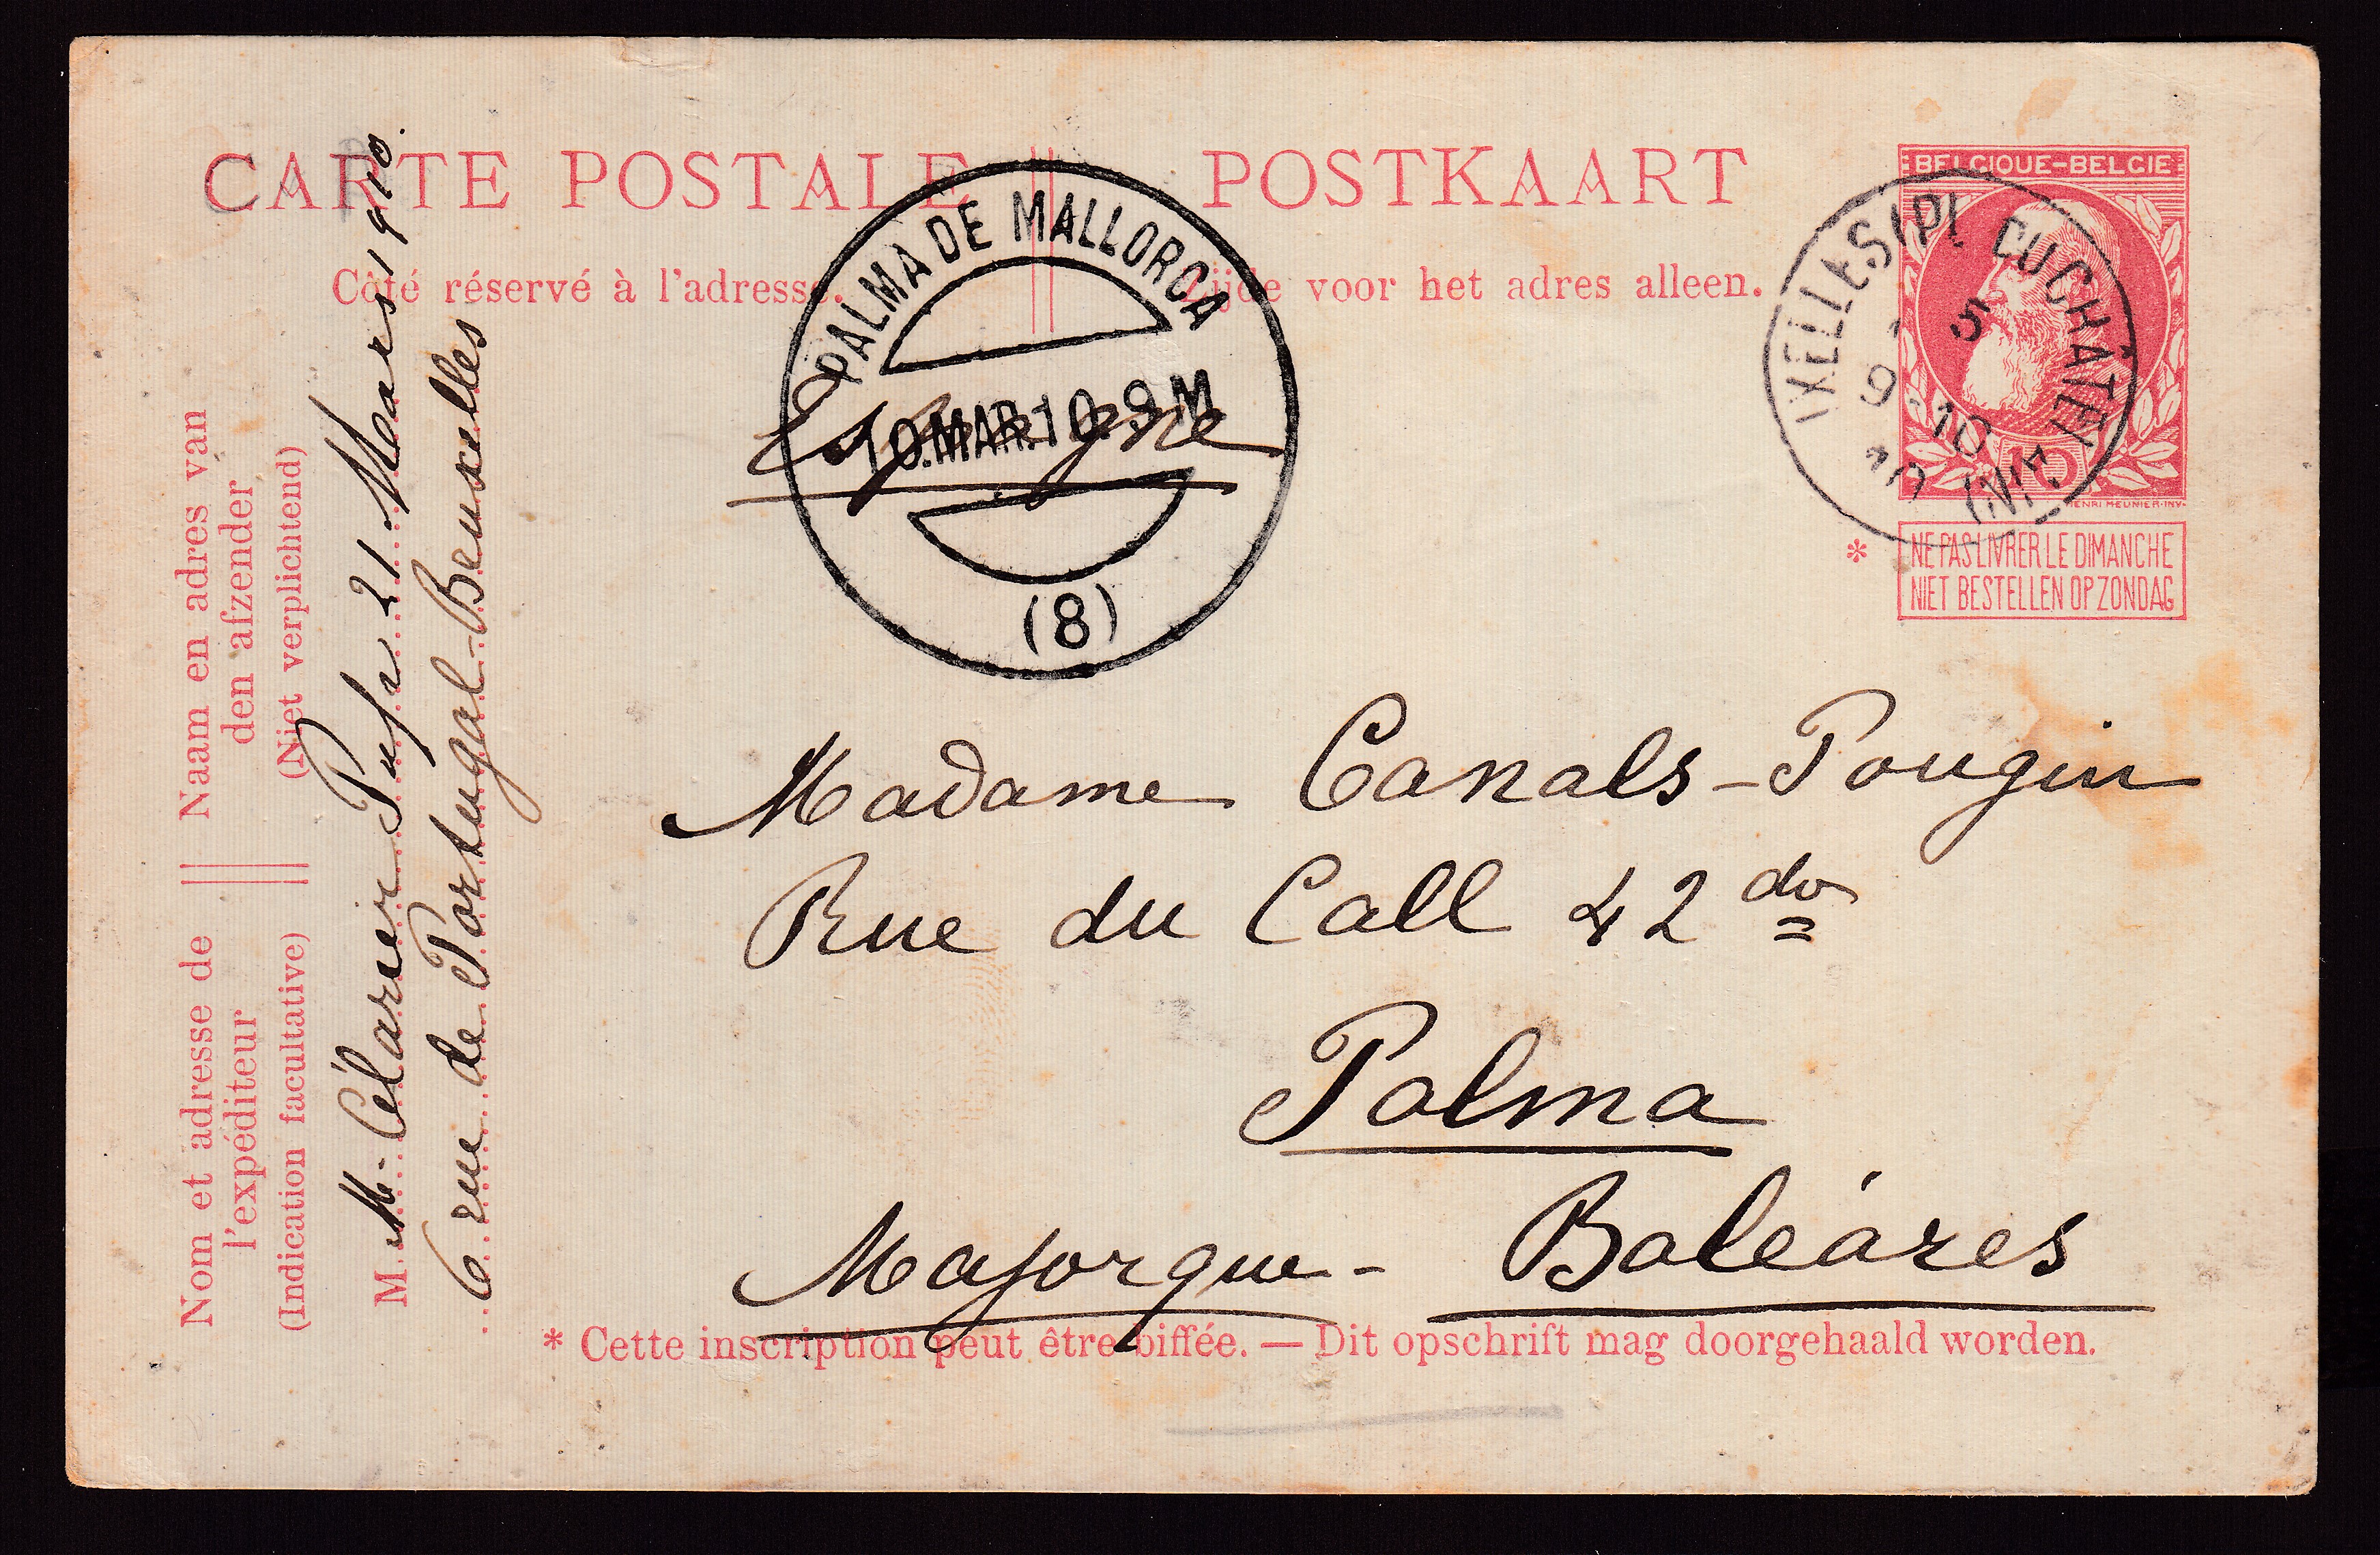 CARTE POSTALE POSTKAART
Côté réservé à l'adresse. Zijde voor het adres alleen.
BELGIQUE-BELGIE
10
HENRI MEUNIER·INV.
IXELLES (PL
(8)
PALMA DE MALLORCA
10.MAR.10.9M
Espagne
* NE PAS LIVRER LE DIMANCHE
NIET BESTELLEN OP ZONDAG
Madame Canals-Pougin
Rue du Call 42 do
Palma
Majorque - Baléares
* Cette inscription peut être biffée. — Dit opschrift mag doorgehaald worden.
Nom et adresse de l'expéditeur
(Indication facultative)
Naam en adres van den afzender
(Niet verplichtend)
M. M. Célarier 21 Mars 1910.
6 rue de Portugal-Bruxelles